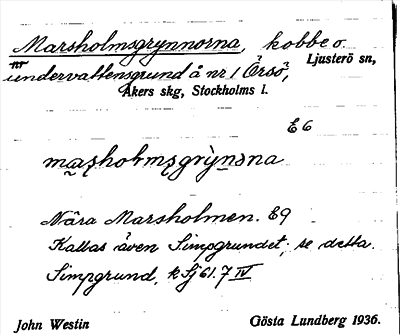 Marsholmsgrynnorna, kobbe o.
Ljusterö sn,
nr undervattensgrund å nr 1 Örsö,
Åkers skg, Stockholms l.
E 6
Nära Marsholmen. E9
Kallas även Simpgrundet; se detta.
Simpgrund, k Sj 61. 7 IV
John Westin
Gösta Lundberg 1936.